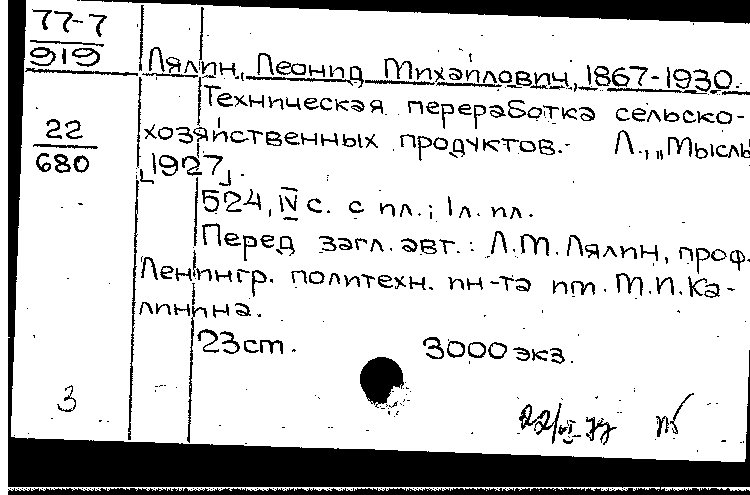 77-7
919
Лялин, Леонид Михайлович, 1867-1930.
Техническая переработка сельско-
22
680
хозяйственных продуктов.- Л., „Мысль
[1927].
524, IV с. с ил.; 1 л. ил.
Перед загл. авт.: Л.М.Лялин, проф.
Ленингр. политехн. ин-та им. М.И.Ка-
линина.
23 ст. 3000 экз.
3
22/VI 77